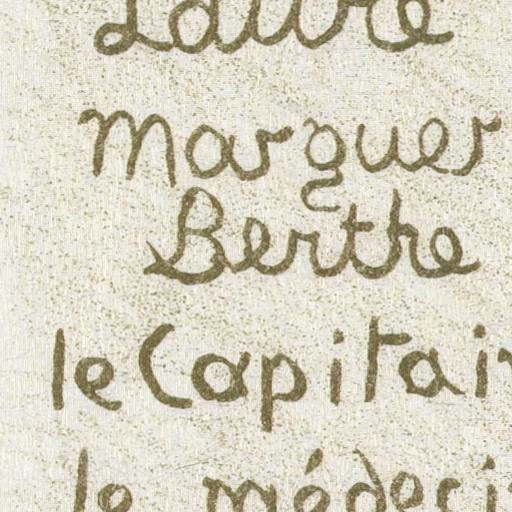 Laure
Marguer
Berthe
le Capitai
le médeci